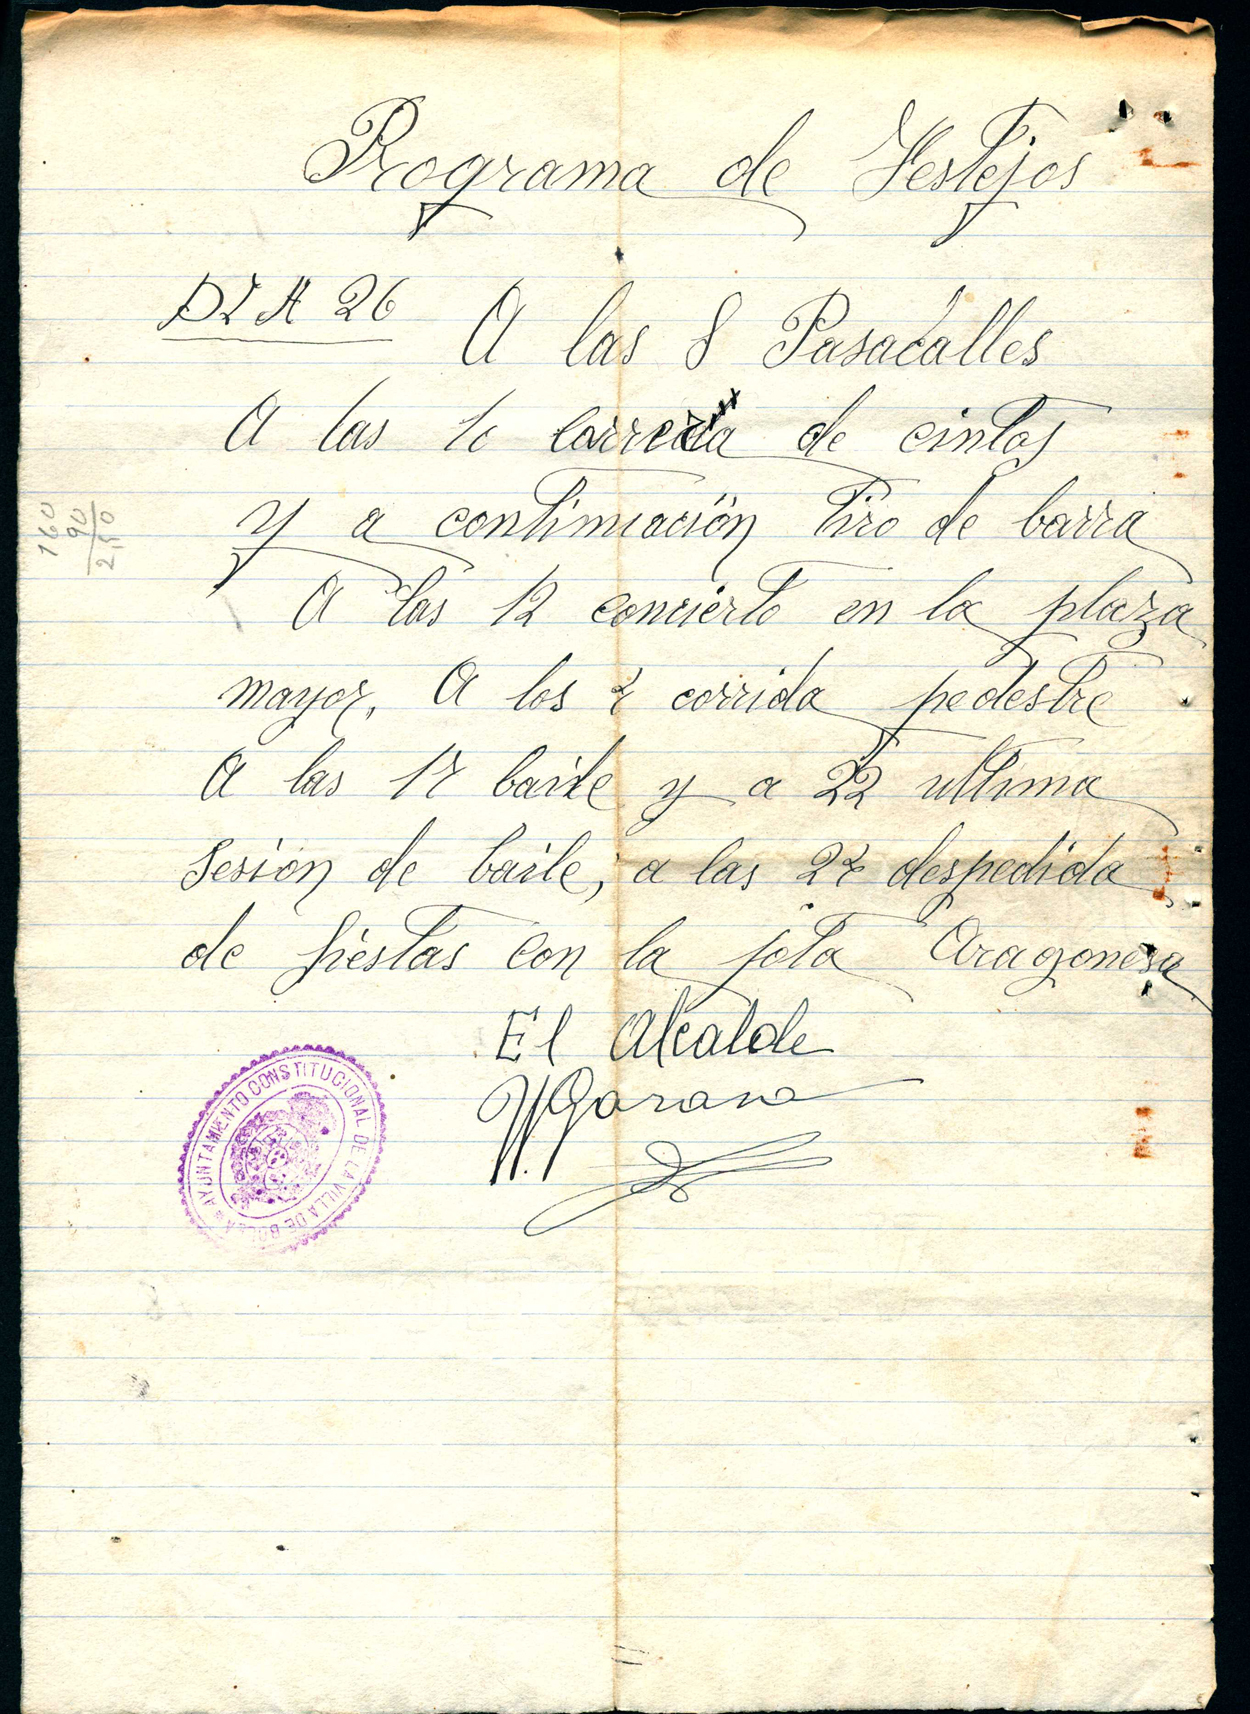 Programa de Festejos
DIA 26 A las 8 Pasacalles
A las 10 carrera de cintas
y a continuación Tiro de barra
A las 12 concierto en la plaza
mayor, A los corrida pedestre
A las 17 baile y a 22 ultima
sesión de baile, a las despedida
de fiestas con la jota Aragonesa
El Alcalde
AYUNTAMIENTO CONSTITUCIONAL DE LA VILLA DE BOLEA
160
90
250